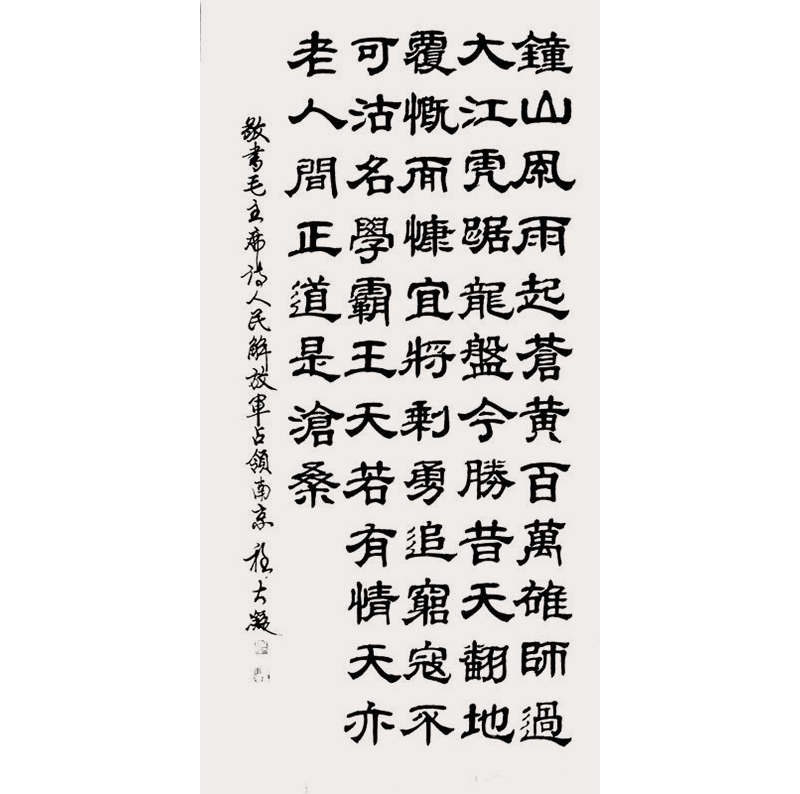 鐘山風雨起蒼黃百萬雄師過
大江虎踞龍盤今勝昔天翻地
覆慨而慷宜將剩勇追窮寇不
可沽名學霸王天若有情天亦
老人間正道是滄桑
敬書毛主席詩人民解放軍占領南京 程大凝